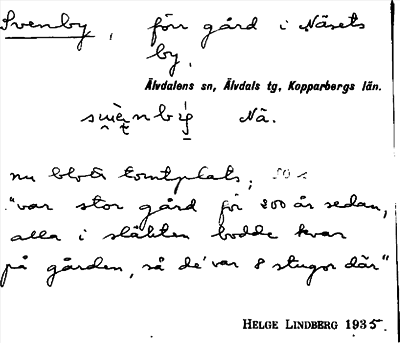 Svenby, förr gård i Näsets
by.
Älvdalens sn, Älvdals tg, Kopparbergs län.
Nä.
nu blott tomtplats;
"var stor gård för 200 år sedan,
alla i släkten bodde kvar
på gården, så de' var 8 stugor där"
HELGE LINDBERG 1935.